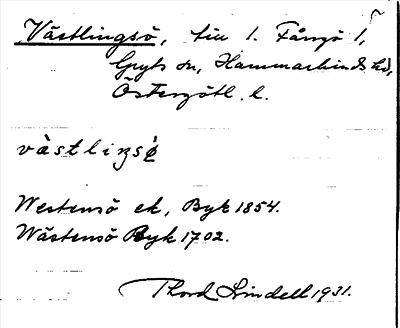 Västlingsö, till 1. Fångö 1,
Gryts sn, Hammarkinds hd,
Östergötl. l.
västlinsö
Westensö ek, Byk 1854.
Wästensö Byk 1702.
Thord Lindell 1931.